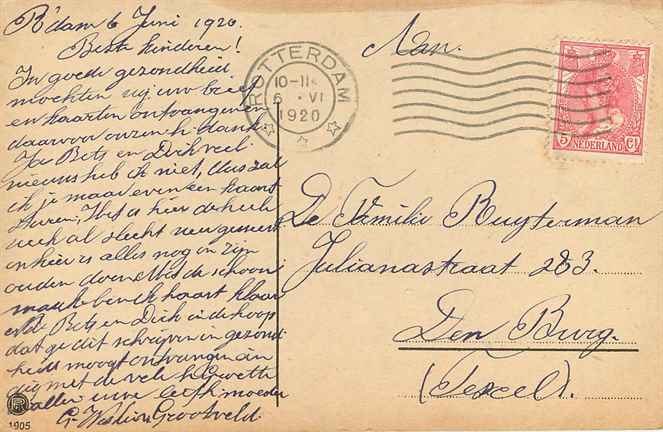 R'dam 6 Juni 1920.
Beste kinderen!
In goede gezondheid
mochten wij uw brief
en kaarten ontvangen
daarvoor onzen h. dank
Ja Bets en Dirk veel
nieuws heb ik niet, dus zal
ik je maar even een kaart
sturen, Het is hier de heele
week al slecht weer geweest
en hier is alles nog in zijn
ouden doen. Met de schoon
maak ben ik haast klaar
Bets en Dirk in de hoop
dat je dit schrijven in gezond
heid moogt ontvangen
met de vele h. Groeten
allen uwe liefh. moeder
G. Grootveld
1905
ROTTERDAM
10-11
6 VI
1920
Aan.
5 NEDERLAND Ct
De Familie Ruyterman
Julianastraat 283.
Den Burg.
(Texel).